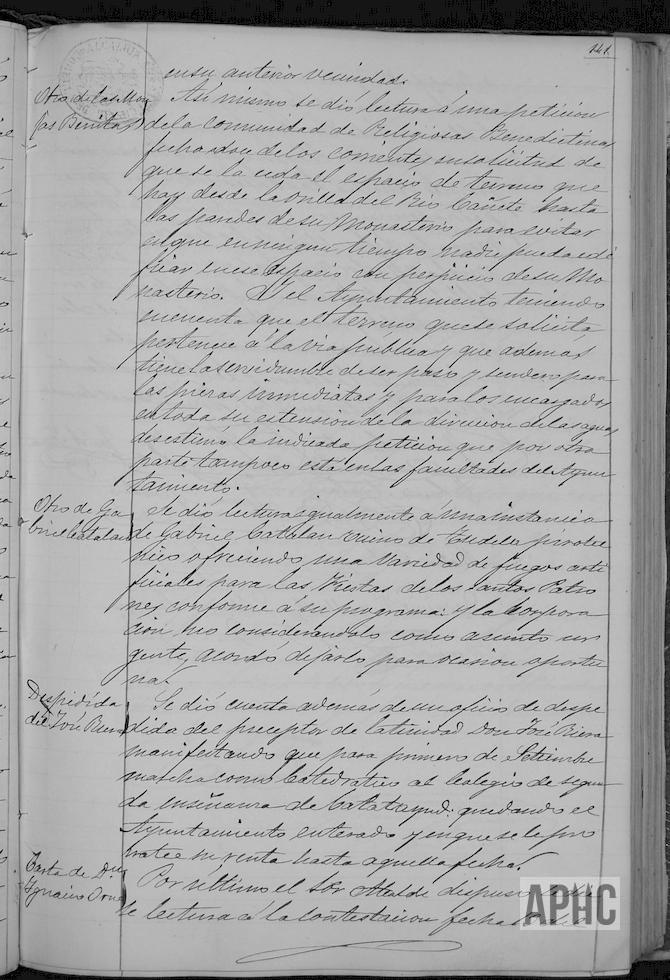 141.
en su anterior vecindad.
Otro de las Mon
jas Benitas
Asi mismo se dió lectura á una peticion
de la comunidad de Religiosas Benedictinas
fecha doce de los corrientes en solicitud de
que se la ceda el espacio de terreno que
hay desde la orilla del Rio Cañete hasta
las paredes de su Monasterio para evitar
el que en ningun tiempo nadie pueda edi
ficar en ese espacio con perjuicio de su Mo
nasterio. Y el Ayuntamiento teniendo
en cuenta que el terreno que se solicita
pertenece á la via publica y que ademas
tiene la servidumbre de ser paso y sendero para
las piezas inmediatas y para los encargados
en toda su estension de la direccion de las aguas,
desestimó la indicada peticion que por otra
parte tampoco está en las facultades del Ayun
tamiento.
Otro de Ga
briel Catalan
Se dió lectura igualmente á una instancia
de Gabriel Catalan vecino de Tudela pirotec
nico ofreciendo una variedad de fuegos arti
ficiales para las Fiestas de los Santos Patro
nes conforme á su programa: y la Corpora
cion no considerandolo como asunto ur
gente, acordó dejarlo para ocasion oportu
na.
Despidida
de José Riera
Se dió cuenta ademas de un oficio de despe
dida del preceptor de latinidad Don José Riera
manifestando que para primero de Setiembre
marcha como Catedratico al Colegio de segun
da enseñanza de Calatayud: quedando el
Ayuntamiento enterado y en que se le pro
ratee su renta hasta aquella fecha.
Carta de Dn
Ignacio
Por ultimo el Sor Alcalde dispuso
se lectura á la contestacion fecha
APHC